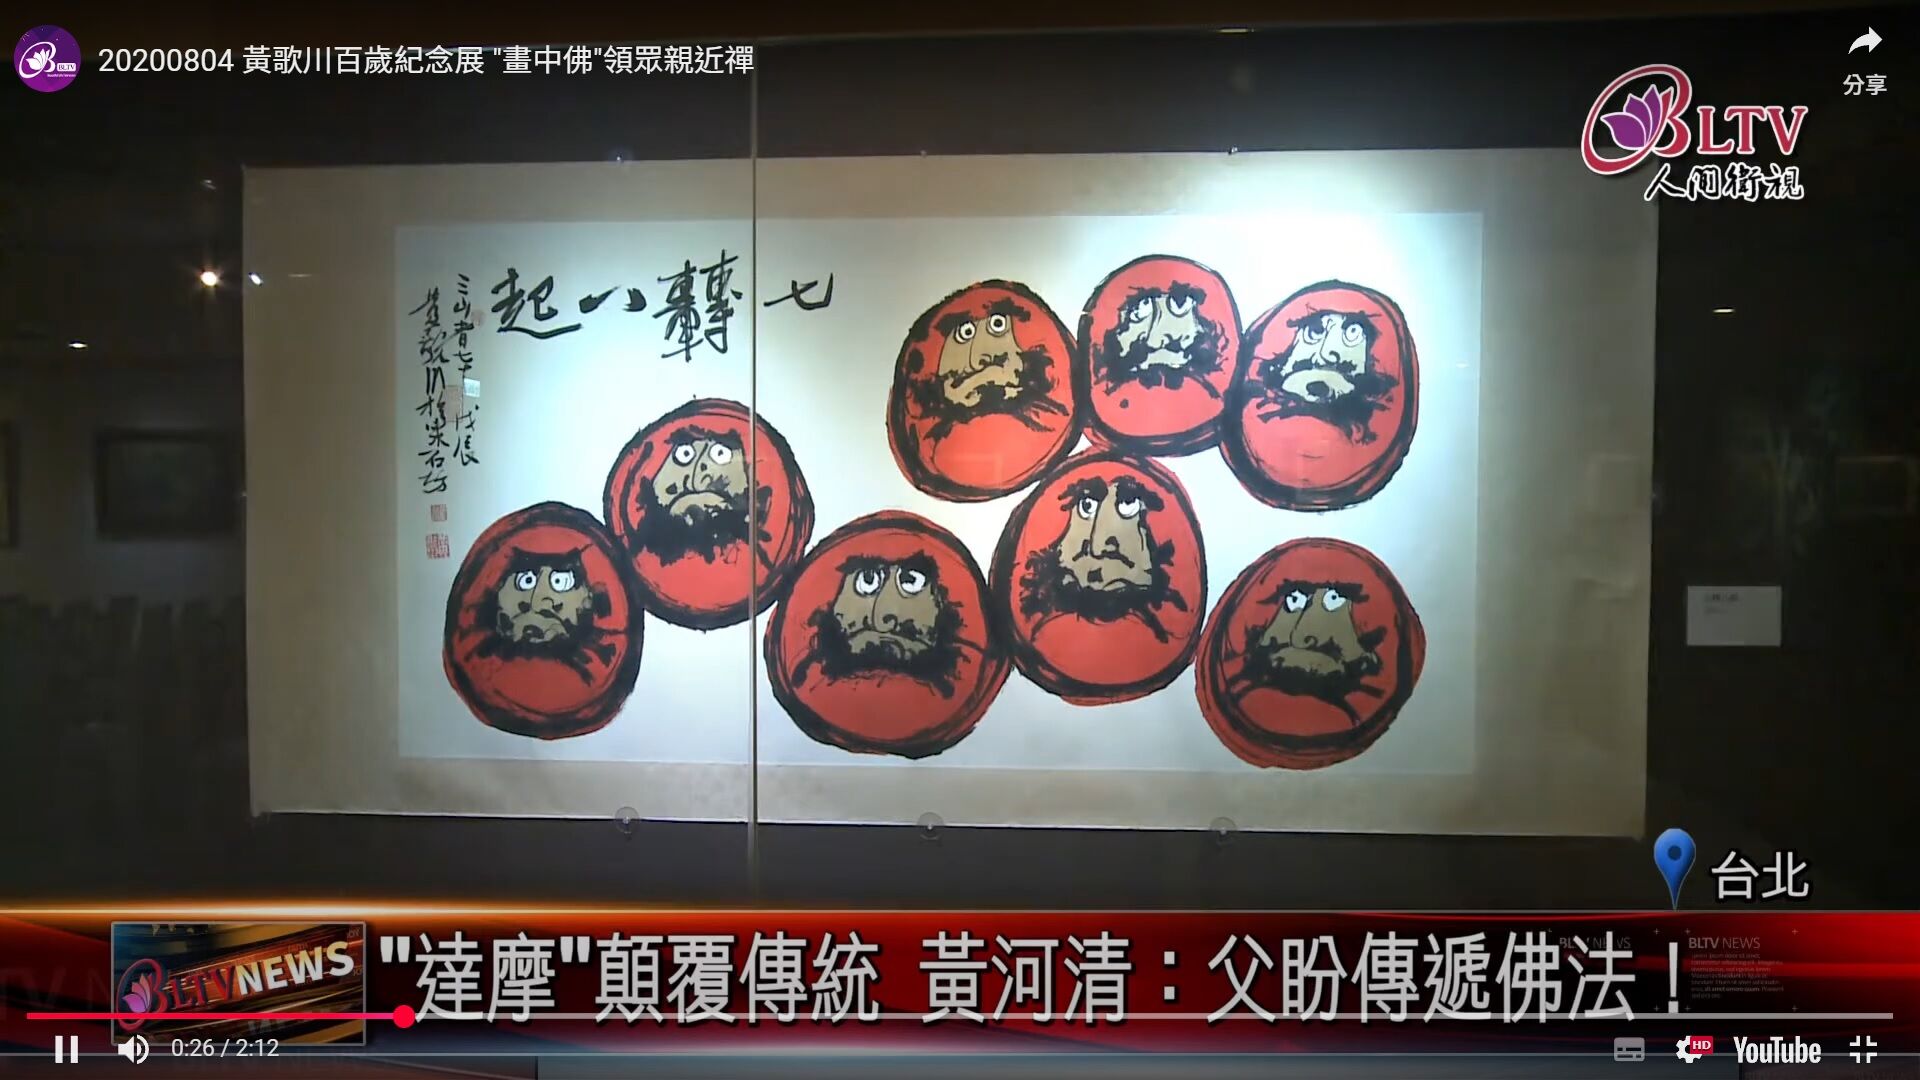 20200804 黃歌川百歲紀念展 "畫中佛"領眾親近禪
分享
BLTV
人間衛視
七轉八起
三山者七十戊辰
黃歌川
台北
BLTV NEWS
"達摩"顛覆傳統 黃河清：父盼傳遞佛法！
BLTV NEWS
BLTV NEWS
0:26 / 2:12
HD
YouTube